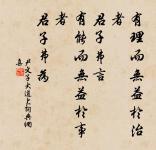 有理而無益於治
者
君子弗言
有能而無益於事
者
君子弗為
尹文子大道上